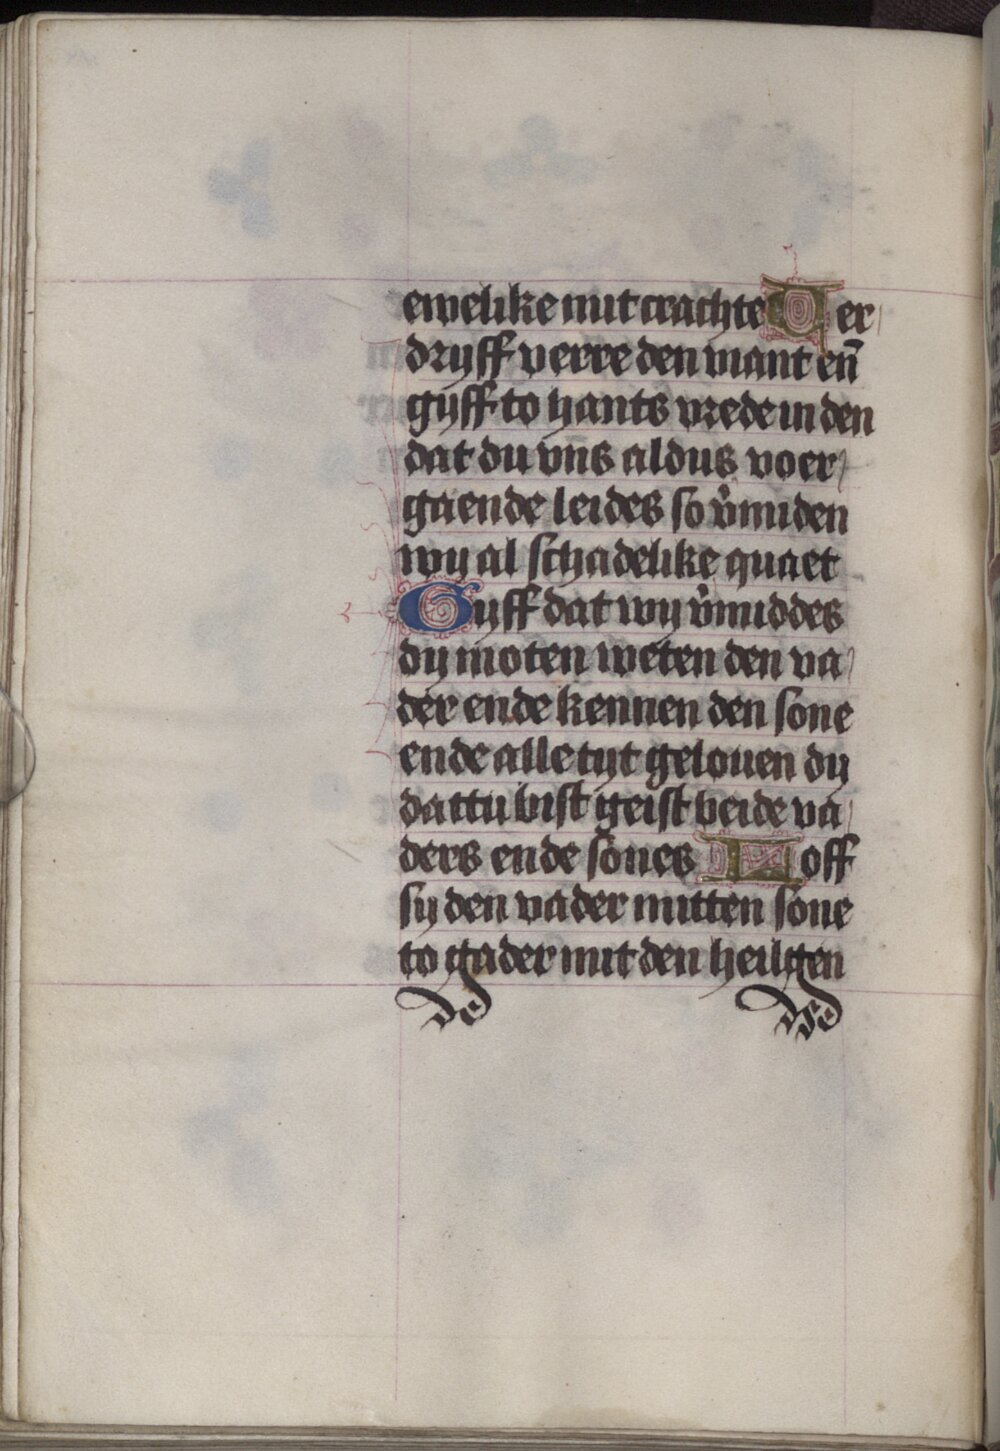 ewelike mit crachte Ver
dryff verre den viant en̄
gyff to hants vrede in den
dat du vns aldus voer
gaende leides so v̉miden
wy al schadelike quaet
Gyff dat wy v̉middes
dy moten weten den va
der ende kennen den sone
ende alle tyt gelouen dy
dattu bist geist beide va
ders ende sones Loff
sy den vader mitten sone
to gader mit den heiligen